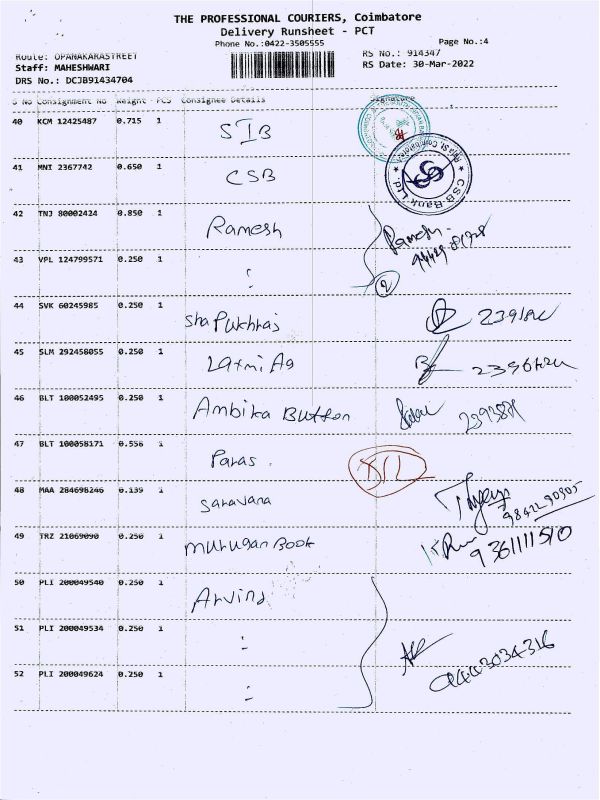 THE PROFESSIONAL COURIERS, Coimbatore
Delivery Runsheet - PCT
Phone No.:0422-3505555
Page No.:4
Route: OPANAKARASTREET
RS No.: 914347
Staff: MAHESHWARI
RS Date: 30-Mar-2022
DRS No.: DCJB91434704
S No Consignment No Weight PCS Consignee Details Signature
40 KCM 12425487 0.715 1 SIB
41 MNI 2367742 0.650 1 CSB
CSB Bank Ltd.
42 TNJ 80002424 0.850 1 Ramesh Ramesh
43 VPL 124799571 0.250 1 "
2
44 SVK 60245985 0.250 1 sha Pukhraj
45 SLM 292458055 0.250 1 Laxmi Ag
46 BLT 100052495 0.250 1 Ambika Button
47 BLT 100058171 0.556 1 Paras
48 MAA 284698246 0.139 1 saravana 9842290305
49 TRZ 21069090 0.250 1 murugan Book 9361111510
50 PLI 200049540 0.250 1 Arvind
51 PLI 200049534 0.250 1 "
9443034316
52 PLI 200049624 0.250 1 "